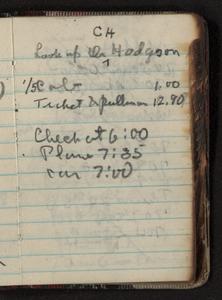 CH
Look up Mr Hodgson
1/5 1.00
Ticket & pullman 12.90
Check out 6:00
Plane 7:35
car 7:00